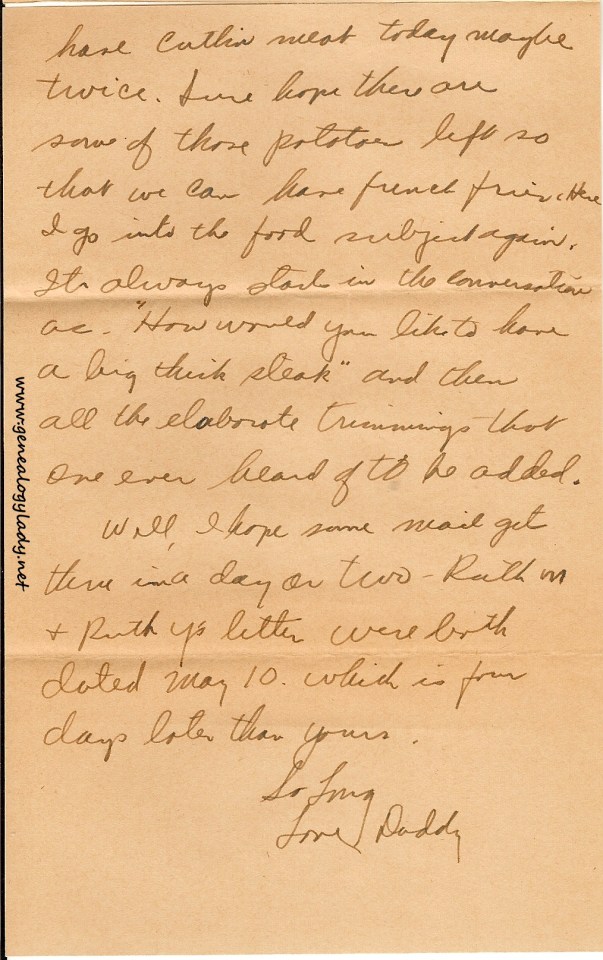 have Cutlin meat today maybe
twice. Sure hope there are
some of those potatoes left so
that we can have french fries. Here
I go into the food subject again.
Its always starts in the conversation
as. "How would you like to have
a big thick steak" and then
all the elaborate trimmings that
one ever heard of to be added.
Well, I hope some mail get
there in a day or two - Ruth M
+ Ruth Y's letter were both
dated May 10. which is four
days later than yours.
So Long
Love Daddy
www.genealogylady.net